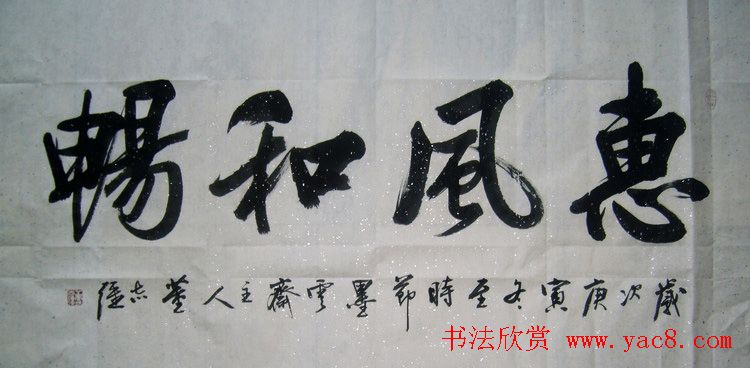 惠風和暢
歲次庚寅冬至時節墨雲齋主人董志
书法欣赏 www.yac8.com